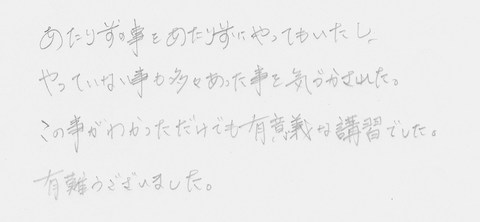 あたり前の事をあたり前にやってもいたし、
やっていない事も多々あった事を気づかされた。
この事がわかっただけでも有意義な講習でした。
有難うございました。